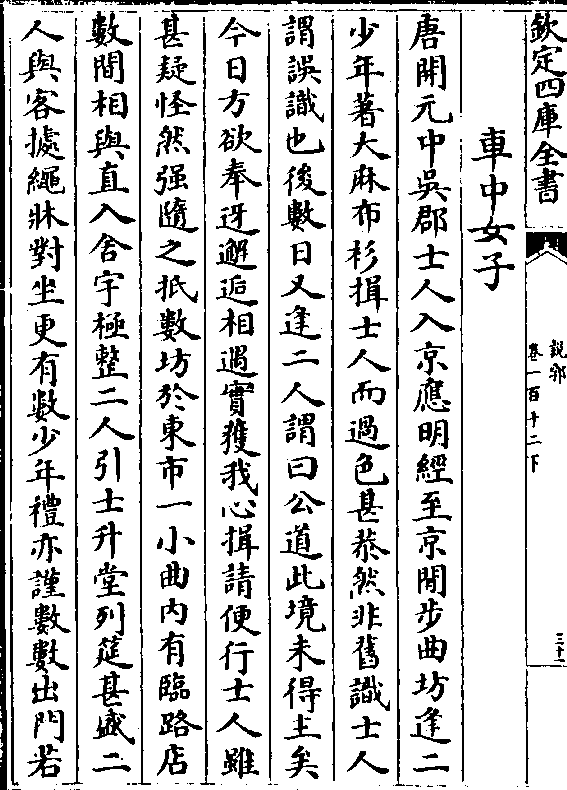 欽定四庫全書
說郛
卷一百十二下
三十一
車中女子
唐開元中吳郡士人入京應明經至京閒步曲坊逢二
少年著大麻布衫揖士人而過色甚恭然非舊識士人
謂誤識也後數日又逢二人謂曰公道此境未得主矣
今日方欲奉迓邂逅相遇實獲我心揖請便行士人雖
甚疑怪然强隨之抵數坊於東市一小曲內有臨路店
數間相與直入舍宇極整二人引士升堂列筵甚盛二
人與客據繩牀對坐更有數少年禮亦謹數數出門若